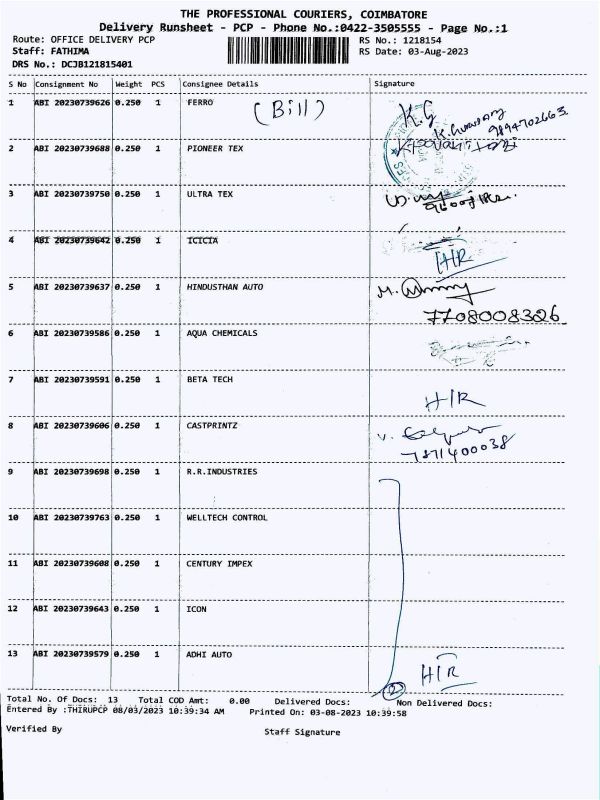 THE PROFESSIONAL COURIERS, COIMBATORE
Delivery Runsheet - PCP - Phone No.:0422-3505555 - Page No.:1
Route: OFFICE DELIVERY PCP RS No.: 1218154
Staff: FATHIMA RS Date: 03-Aug-2023
DRS No.: DCJB121815401
S No Consignment No Weight PCS Consignee Details Signature
1 ABI 20230739626 0.250 1 FERRO (Bill) K.G
9894702663
2 ABI 20230739688 0.250 1 PIONEER TEX
3 ABI 20230739750 0.250 1 ULTRA TEX
4 ABI 20230739642 0.250 1 ICICIA H/R
5 ABI 20230739637 0.250 1 HINDUSTHAN AUTO M.
7708008326
6 ABI 20230739586 0.250 1 AQUA CHEMICALS
7 ABI 20230739591 0.250 1 BETA TECH H/R
8 ABI 20230739606 0.250 1 CASTPRINTZ V.
7871400038
9 ABI 20230739698 0.250 1 R.R.INDUSTRIES
10 ABI 20230739763 0.250 1 WELLTECH CONTROL
11 ABI 20230739608 0.250 1 CENTURY IMPEX
12 ABI 20230739643 0.250 1 ICON
13 ABI 20230739579 0.250 1 ADHI AUTO H/R
2
Total No. Of Docs: 13 Total COD Amt: 0.00 Delivered Docs: Non Delivered Docs:
Entered By :THIRUPCP 08/03/2023 10:39:34 AM Printed On: 03-08-2023 10:39:58
Verified By Staff Signature